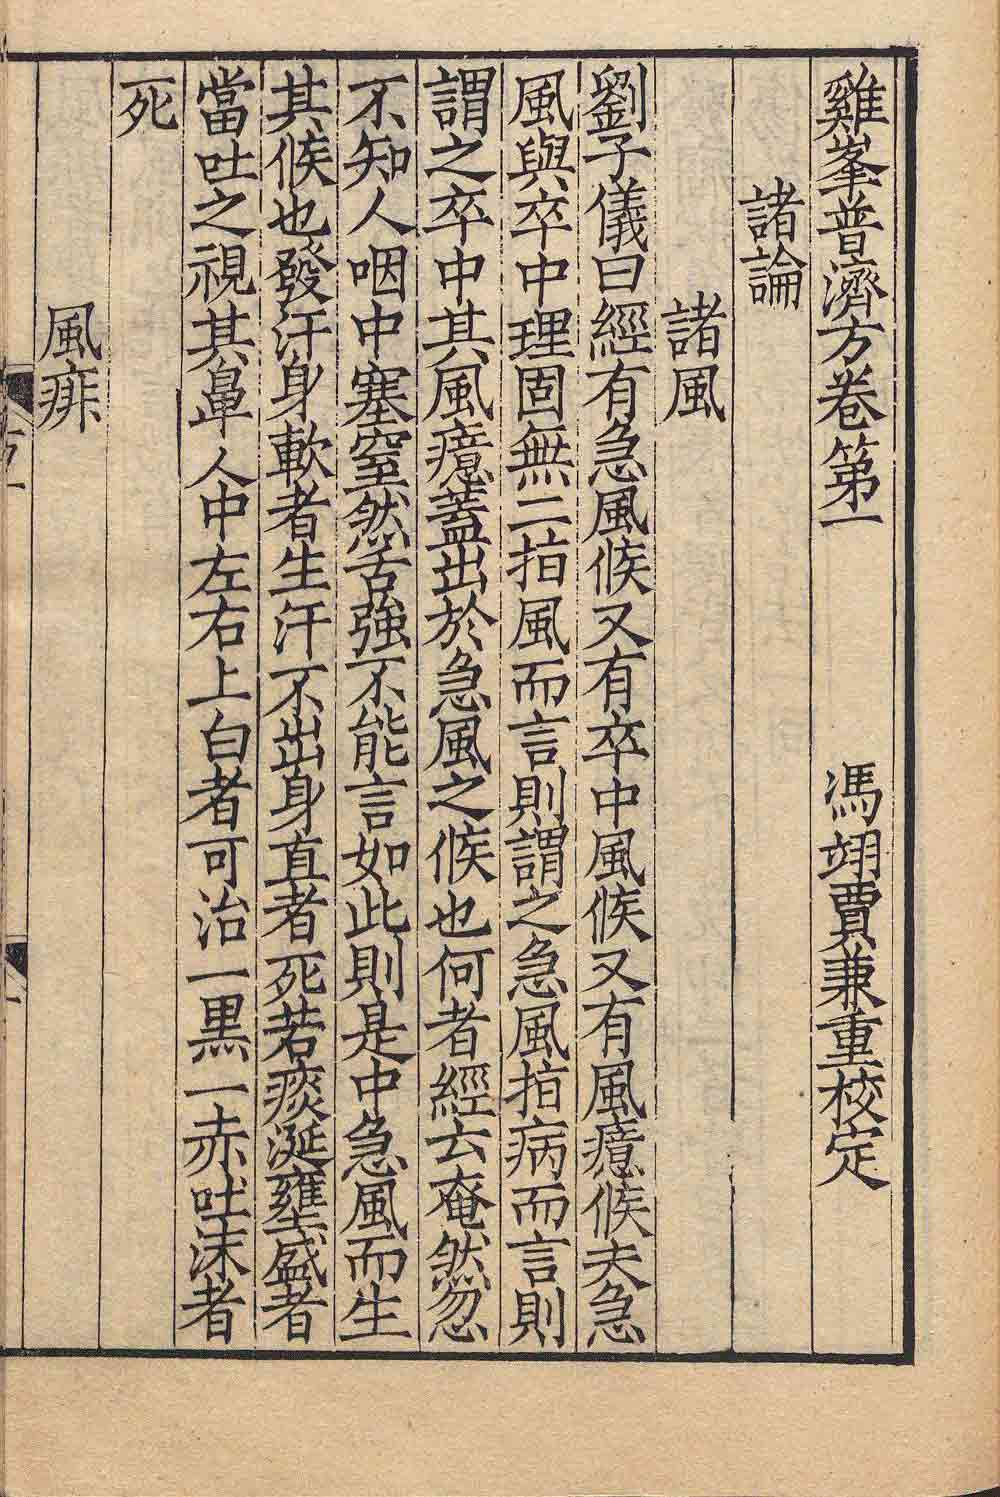 雞峯普濟方卷第一 馮翊賈兼重校定
諸論
諸風
劉子儀曰經有急風候又有卒中風候又有風癔候夫急
風與卒中理固無二指風而言則謂之急風指病而言則
謂之卒中其風癔蓋出於急風之候也何者經云奄然忽
不知人咽中塞窒然舌強不能言如此則是中急風而生
其候也發汗身軟者生汗不出身直者死若痰涎壅盛者
當吐之視其鼻人中左右上白者可治一黒一赤吐沫者
死
風痱